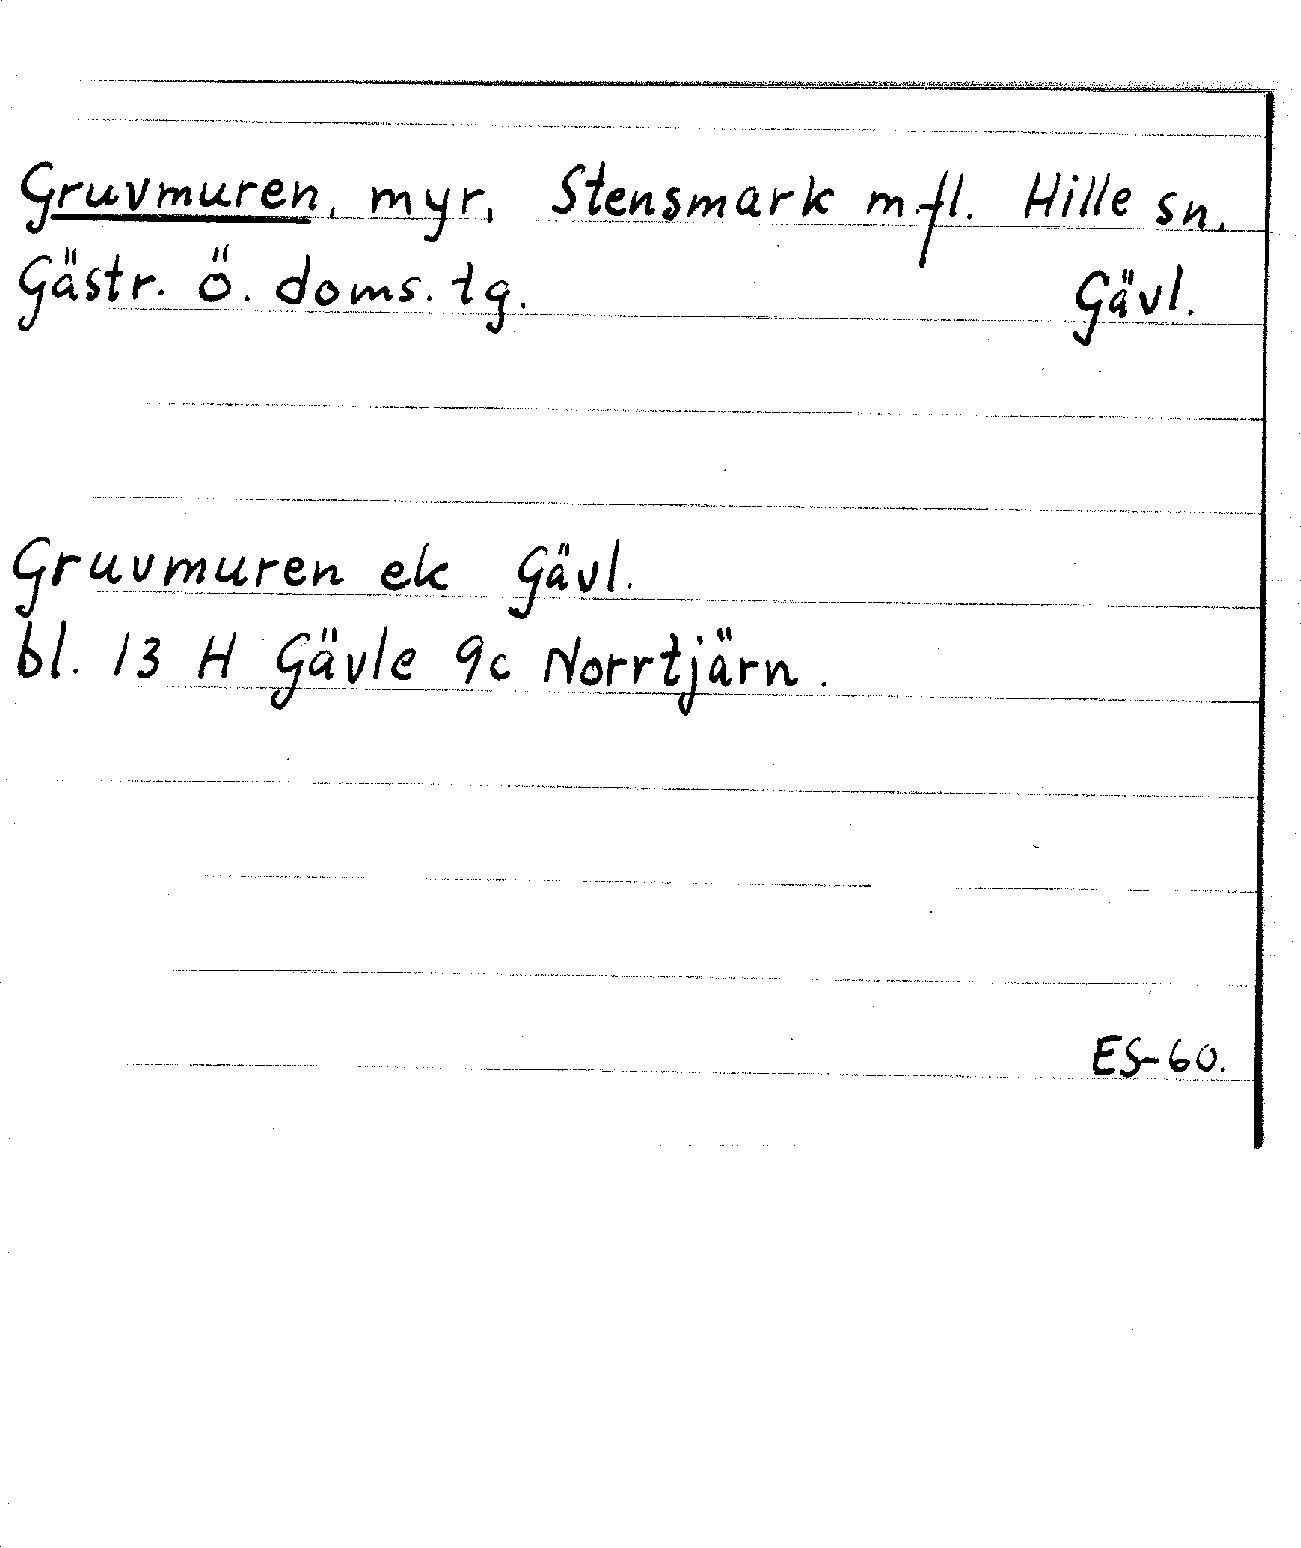 Gruvmuren, myr, Stensmark m.fl. Hille sn.
Gästr. Ö. doms. tg. Gävl.
Gruvmuren ek Gävl.
bl. 13 H Gävle 9c Norrtjärn.
ES-60.